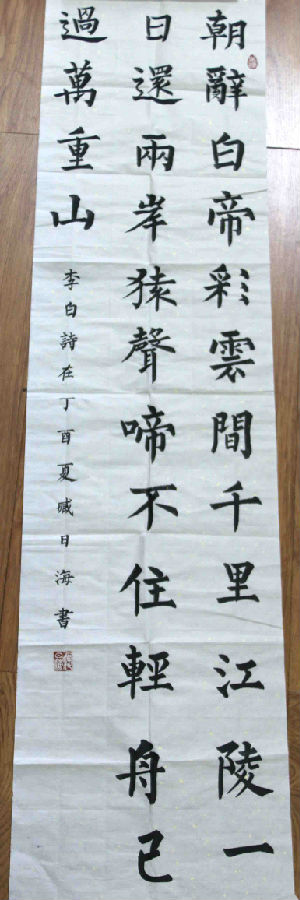 朝辭白帝彩雲間千里江陵一
日還兩岸猿聲啼不住輕舟已
過萬重山
李白詩在丁酉夏臧日海書